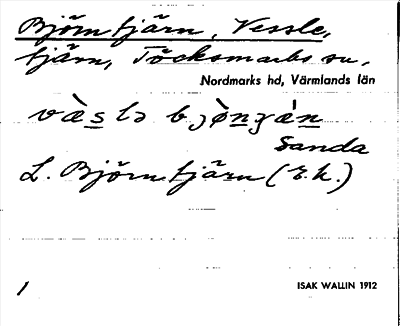 Björntjärn, Vessle,
tjärn, Töcksmarks sn.
Nordmarks hd, Värmlands län
Sanda
L. Björntjärn (E.k.)
1 ISAK WALLIN 1912